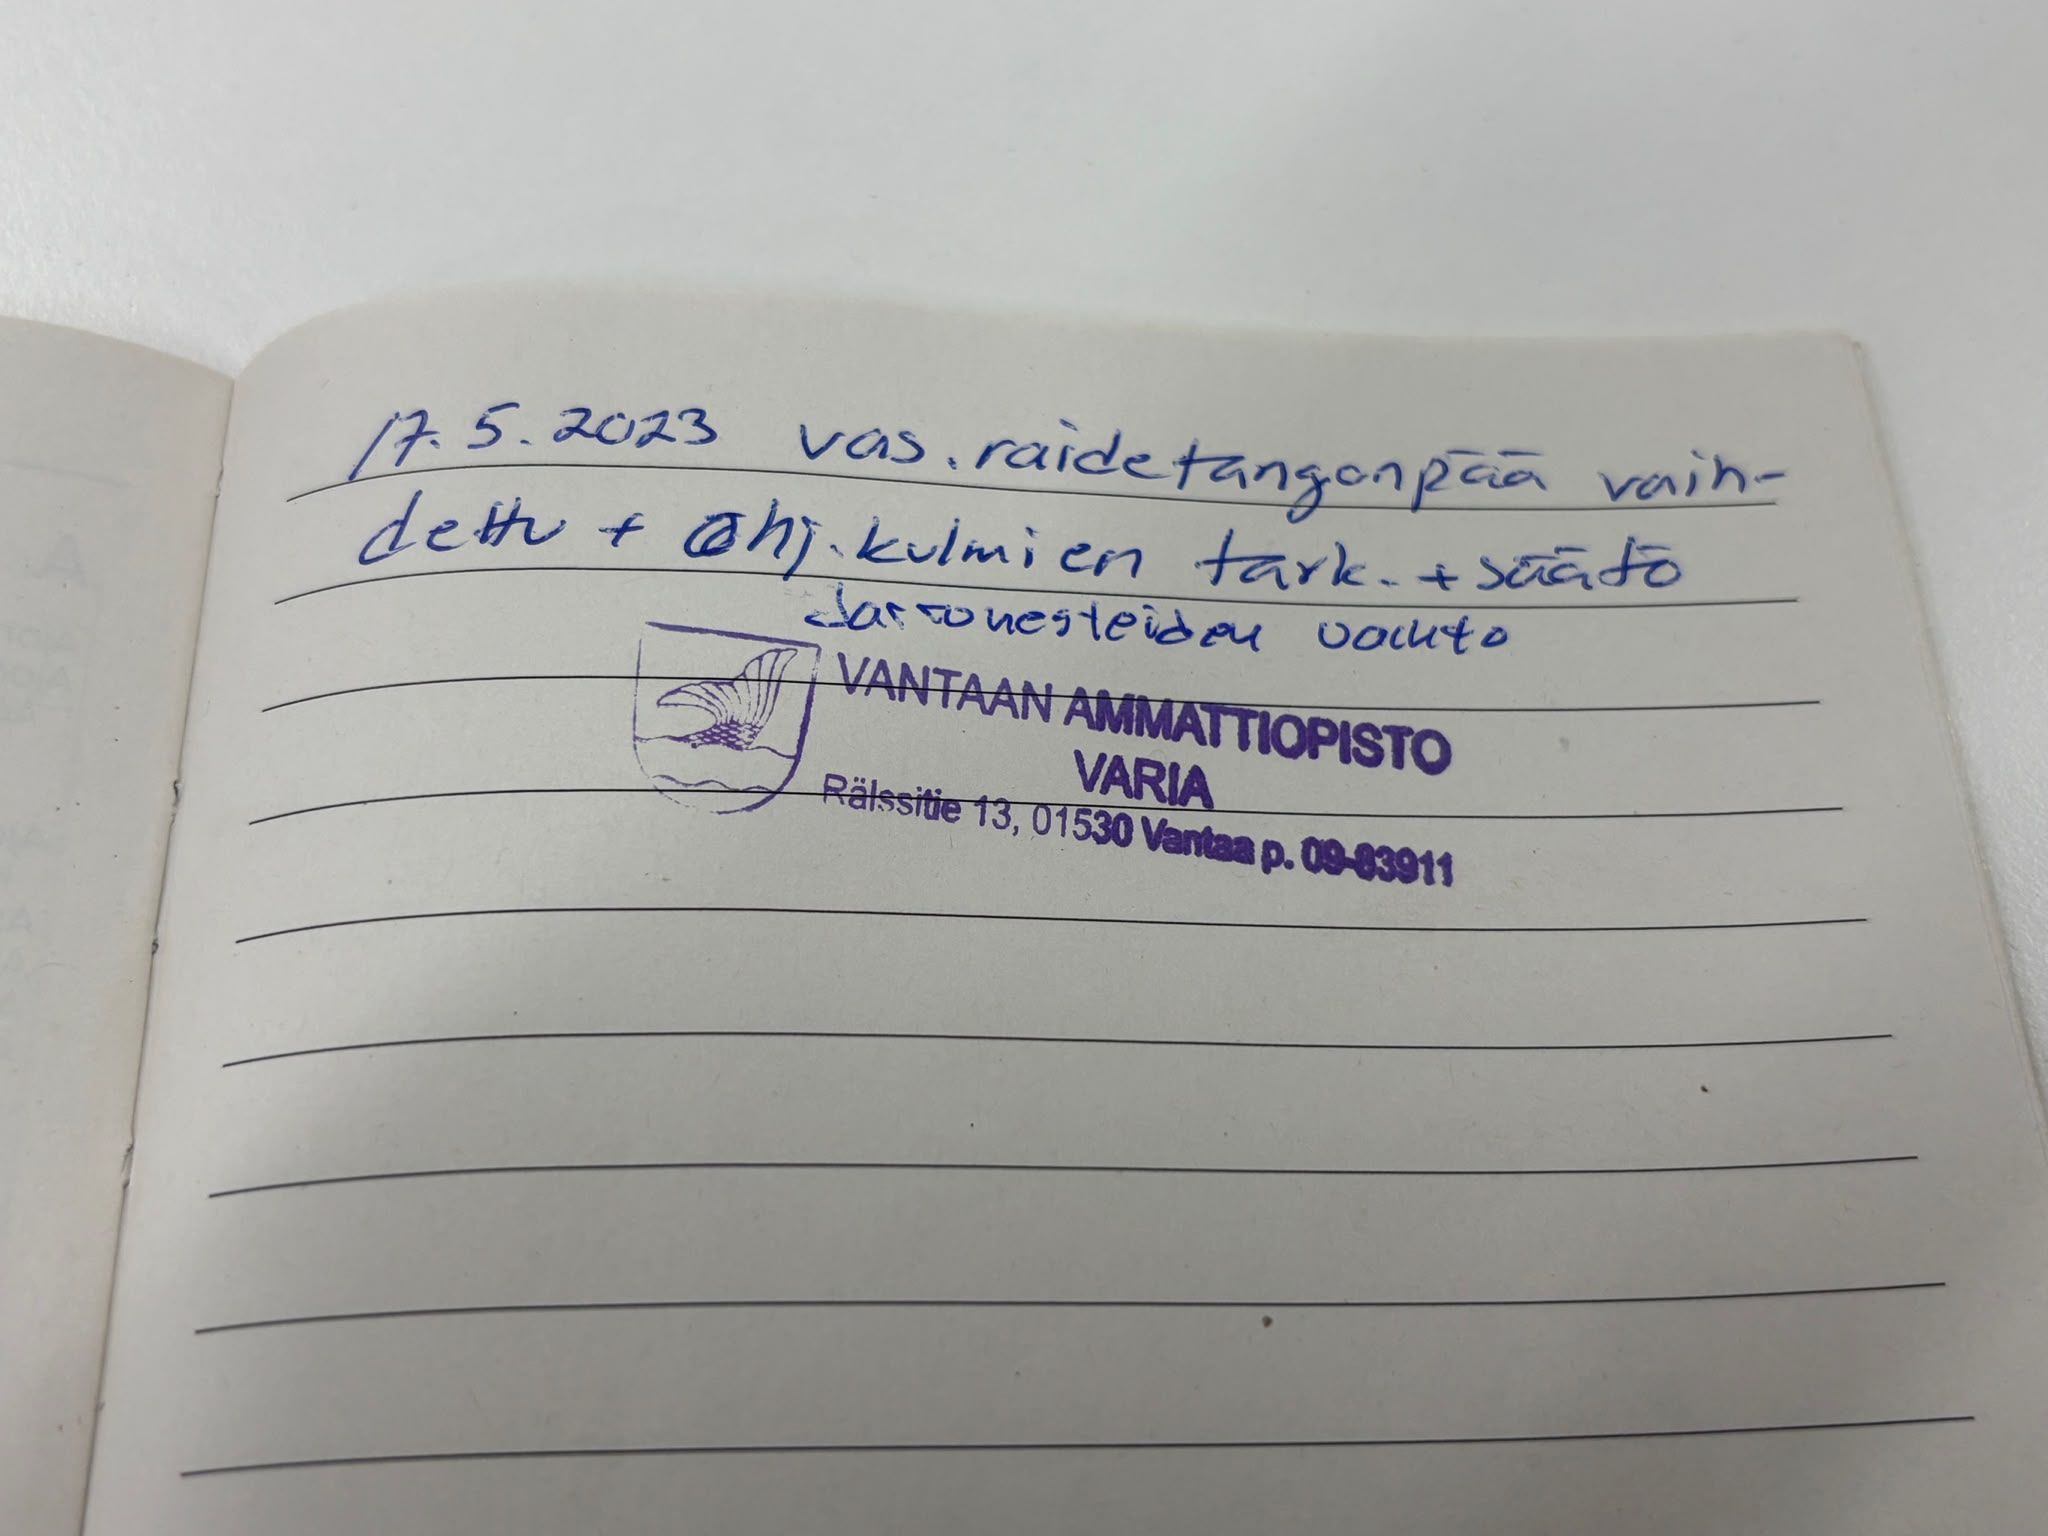 17.5.2023 vas. raidetangonpää vaih-
dettu + ohj. kulmien tark. + säätö
Jarrunesteiden vaihto
VANTAAN AMMATTIOPISTO
VARIA
Rälssitie 13, 01530 Vantaa p. 09-83911